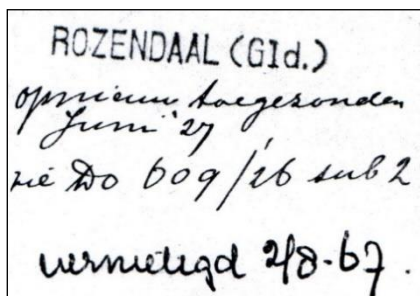 ROZENDAAL (Gld.)
opnieuw toegezonden
Juni '27
zie Do 609/26 sub 2
vernietigd 2/8-67.